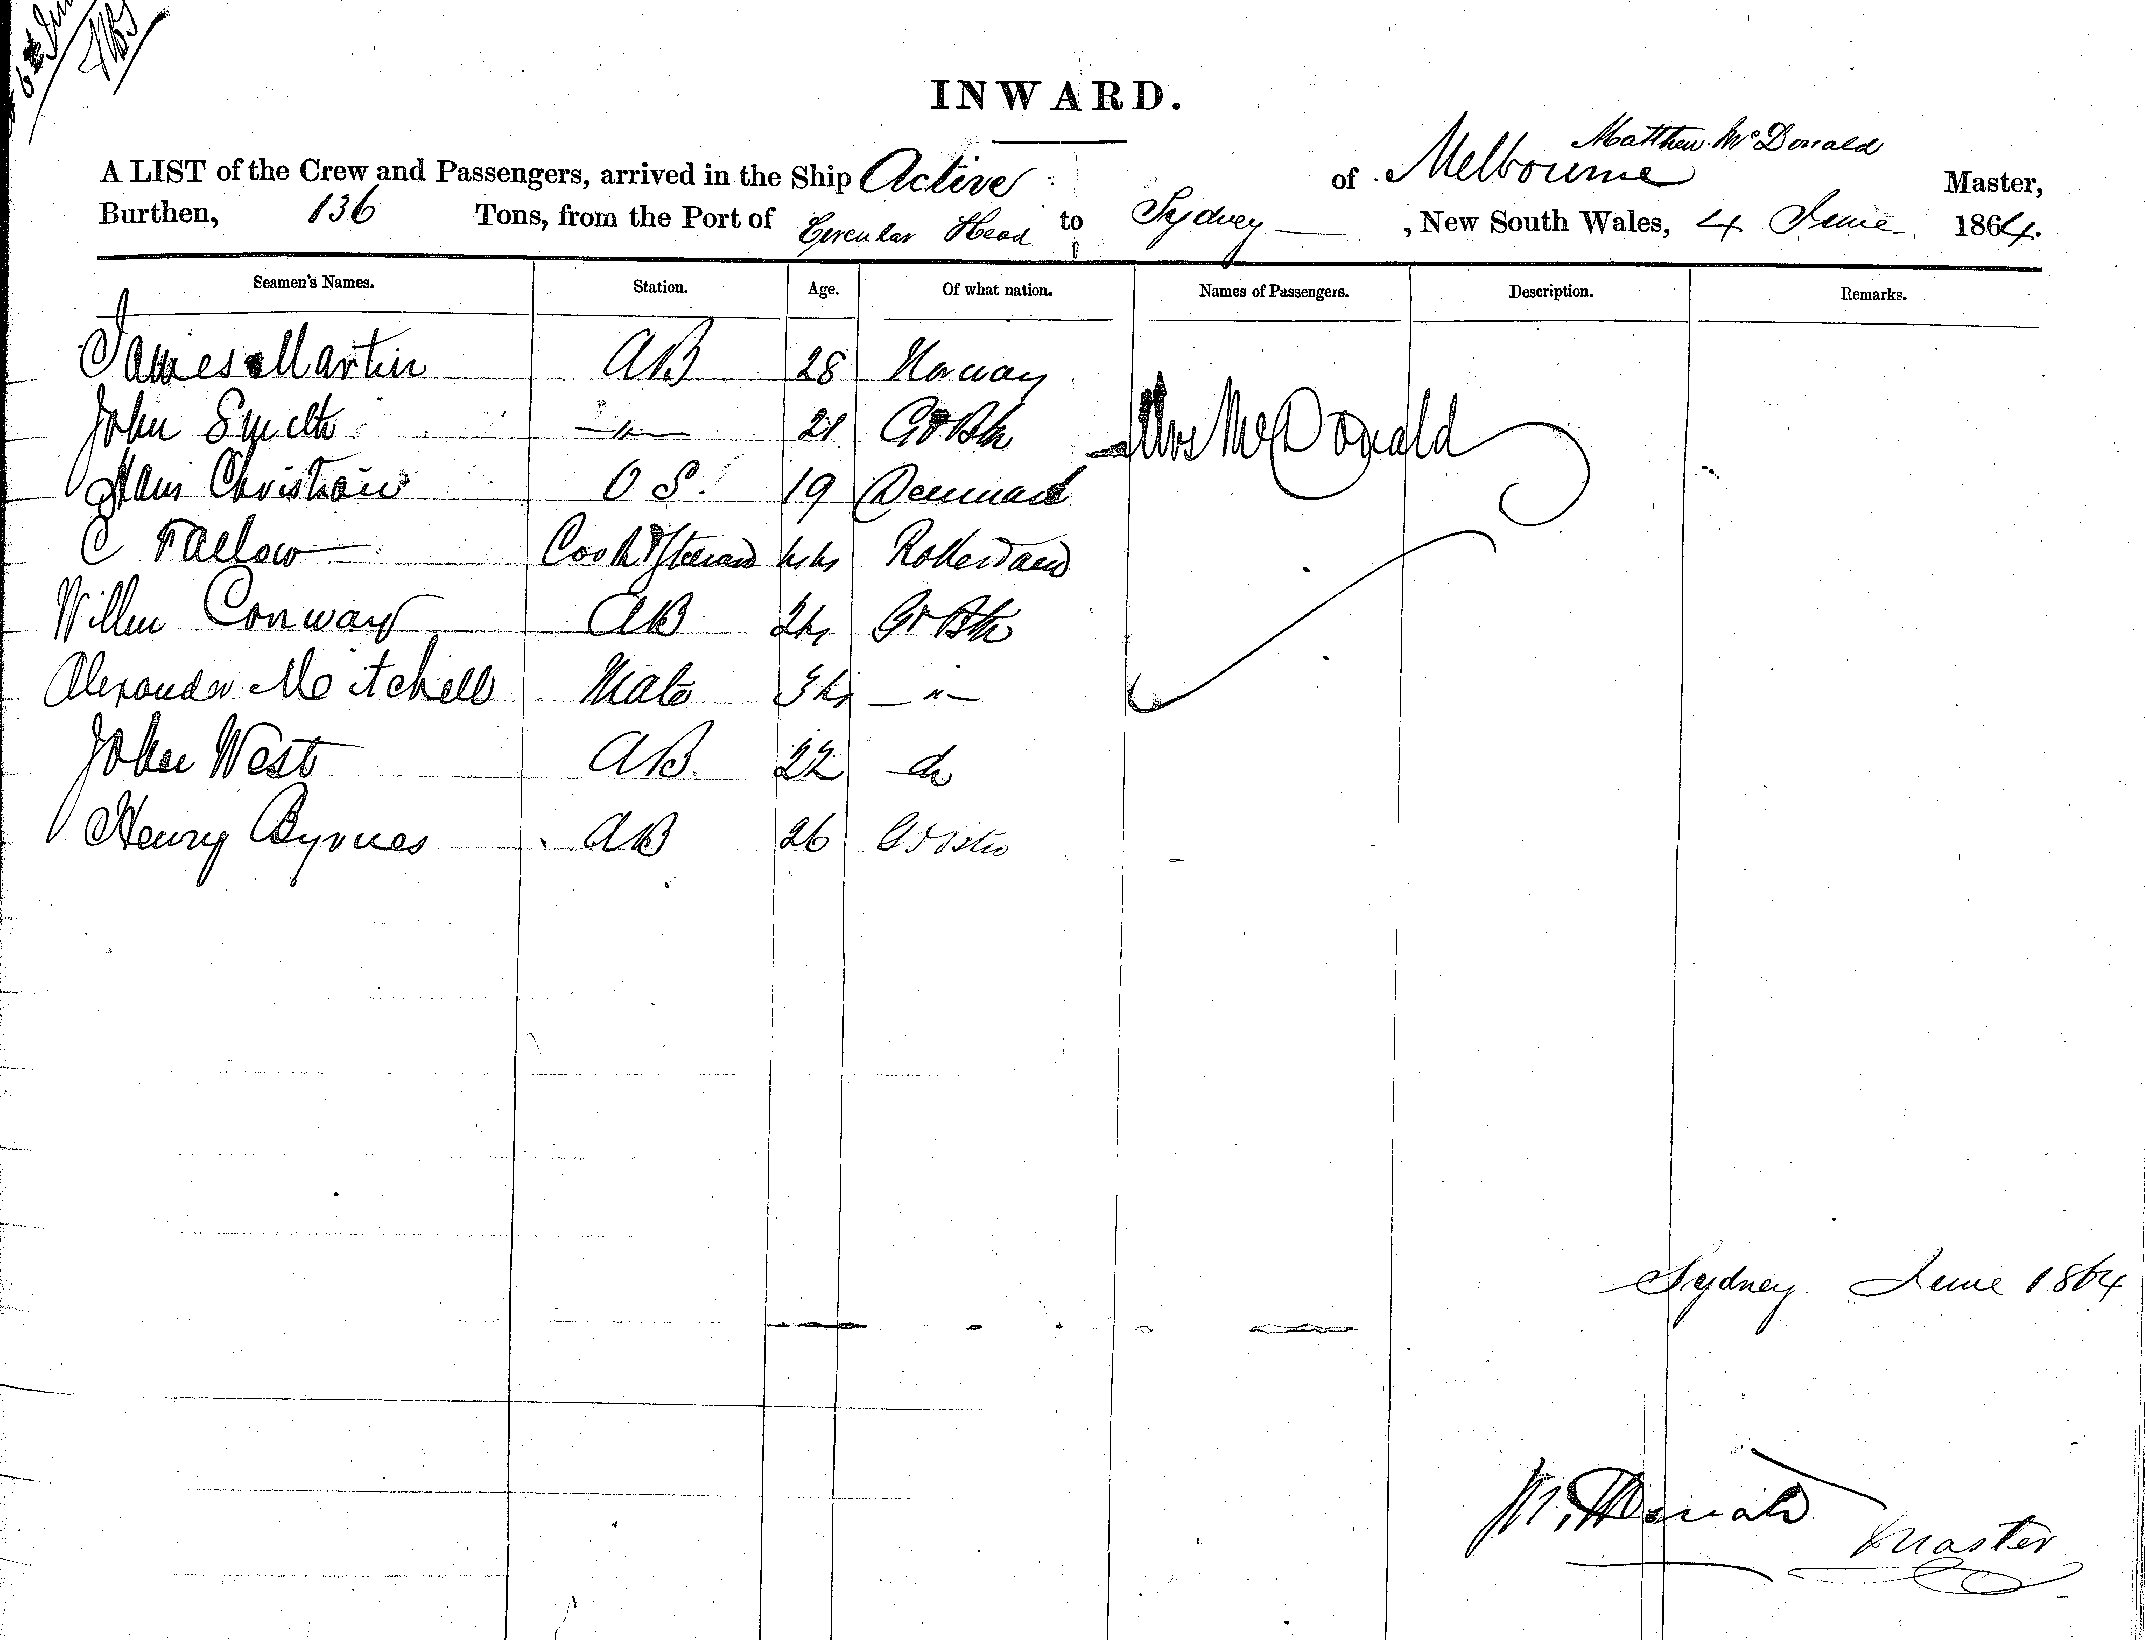 6th June
INWARD.
Matthew McDonald
A LIST of the Crew and Passengers, arrived in the Ship Active of Melbourne Master,
Burthen, 136 Tons, from the Port of Circular Head to Sydney , New South Wales, 4 June 1864.
Seamen's Names. Station. Age. Of what nation. Names of Passengers. Description. Remarks.
James Martin AB 28 Norway
John Smith —"— 21 Gt Btn Mrs McDonald
Hans Christian OS. 19 Denmark
C Fallow Cook & Steward 44 Rotterdam
Willm Conway AB 24 Gt Btn
Alexander Mitchell Mate 34 —"—
John West AB 22 do
Henry Byrnes AB 26
Sydney June 1864
M. McDonald
Master